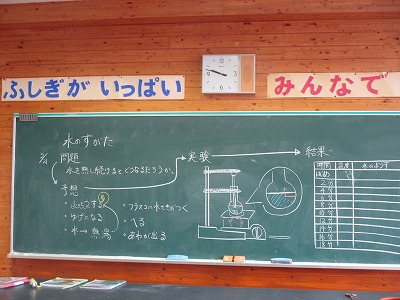 ふしぎが いっぱい
みんなで
水のすがた
問題
水を熱し続けるとどうなるだろうか。
予想
・ふっとうする
・ゆげになる
・水→熱湯
・フラスコに水てきがつく
・へる
・あわが出る
実験
結果
時間 温度 水のようす
はじめ ℃
2分
4分
6分
8分
10分
12分
14分
16分
18分